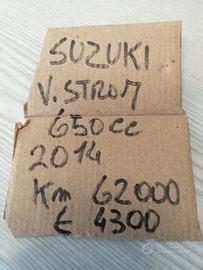 SUZUKI
V. STROM
650cc
2014
Km 62000
€ 4300